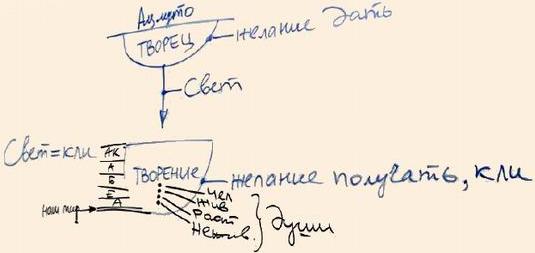 Ацмуто
ТВОРЕЦ
желание дать
Свет
Свет=кли
АК
А
Б
Е
А
ТВОРЕНИЕ
желание получать, кли
наш мир
Чел
Жив
Раст
Нежив.
Души